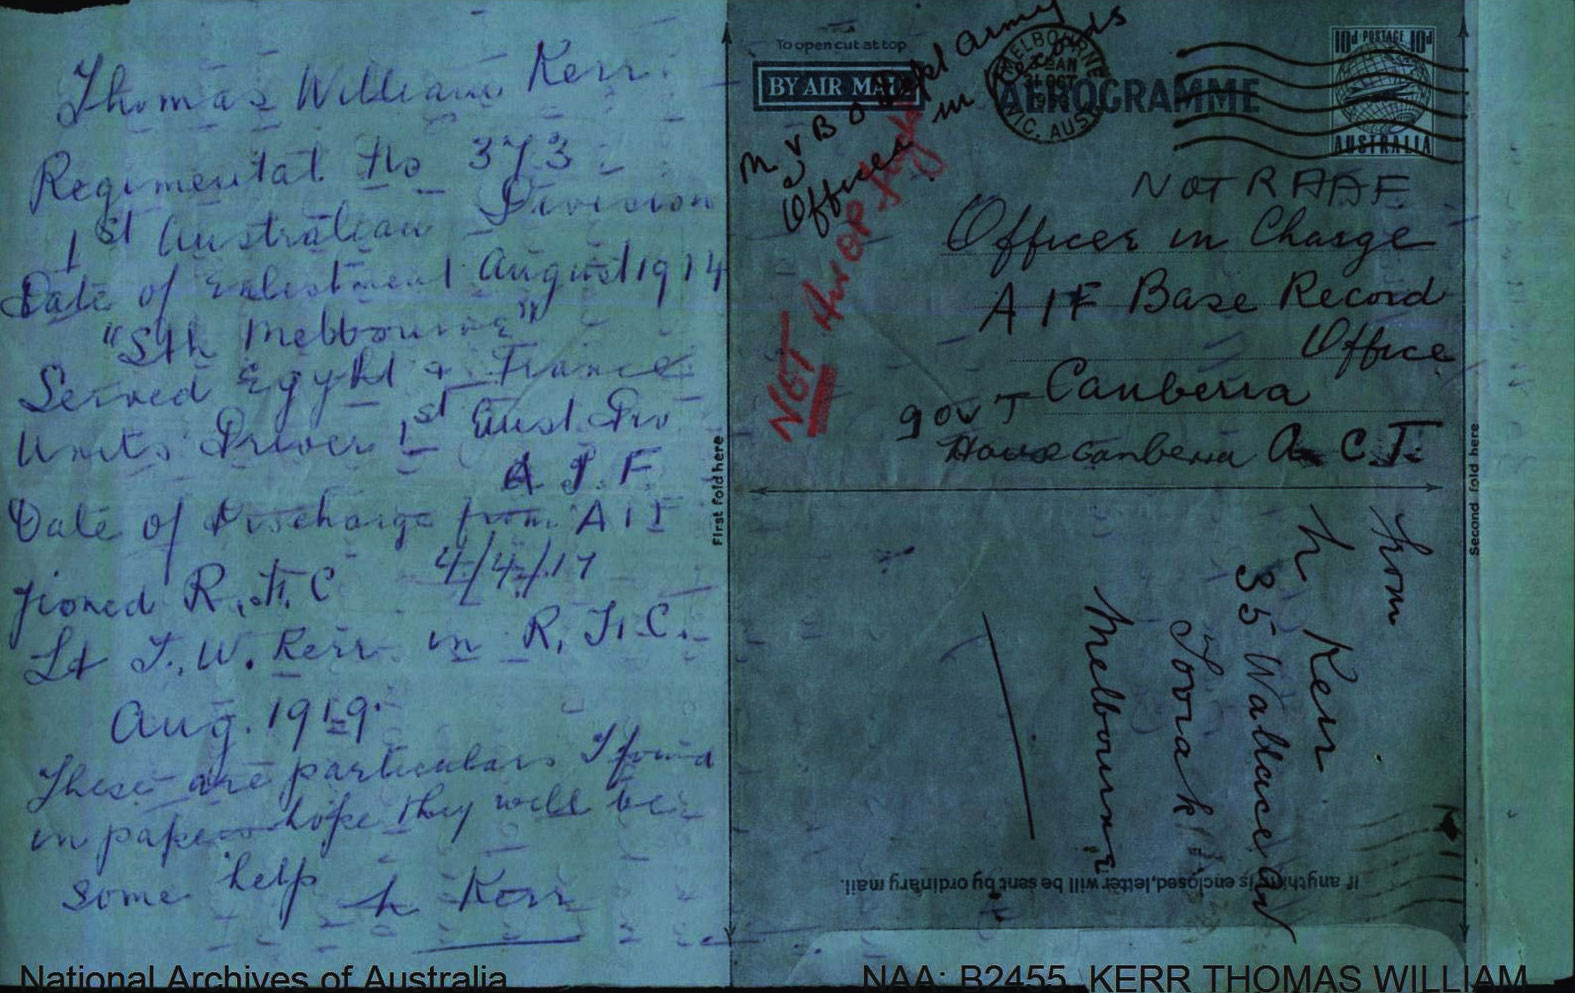 Thomas William Kerr.
Regimental No 373
1st Australian Division
Date of Enlistment August 1914
"Sth Melbourne"
Served Egypt & France
Units Driver 1st Aust Div
A I F.
Date of Discharge from A I F
4/4/17
Jioned R. F. C
Lt T. W. Kerr in R. F. C.
Aug. 1919.
These are particulars I found
in papers hope they will be
some help
Kerr
First fold here
To open cut at top
BY AIR MAIL
AEROGRAMME
MELBOURNE
VIC. AUST
10d POSTAGE 10d
AUSTRALIA
Army
in
Offices
NOT
NOT RAAF.
Officer in Charge
A I F Base Record
Office
Canberra
A. C. T.
Second fold here
From
Kerr
35 Wallace Av
Toorak
Melbourne
If anything is enclosed, letter will be sent by ordinary mail.
National Archives of Australia
NAA: B2455, KERR THOMAS WILLIAM